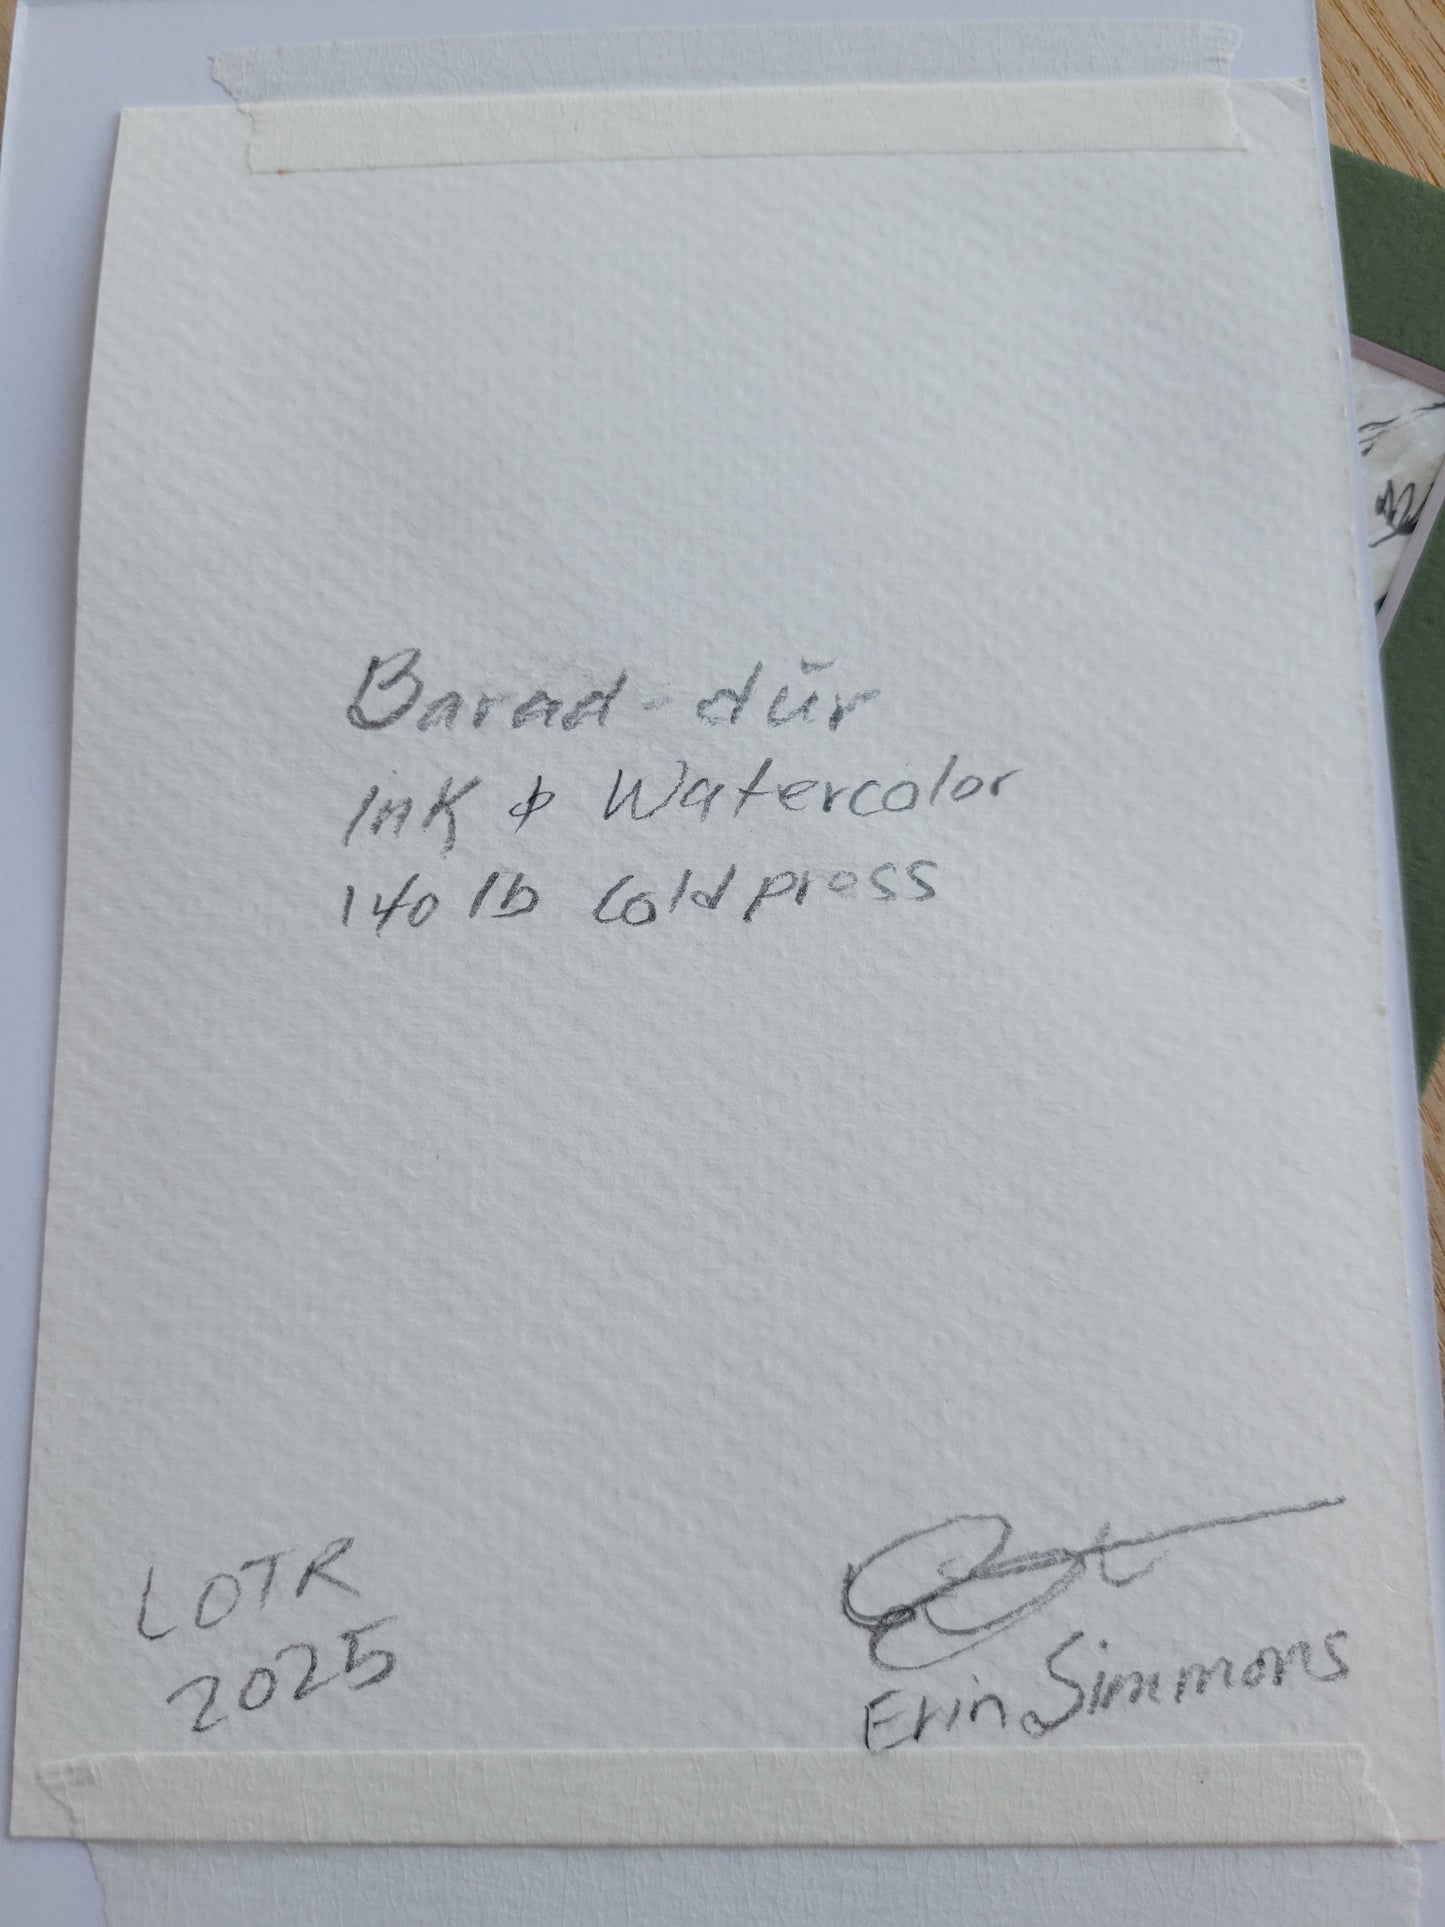 Barad-dûr
Ink & Watercolor
140 lb Coldpress
LOTR
2025
Erin Simmons